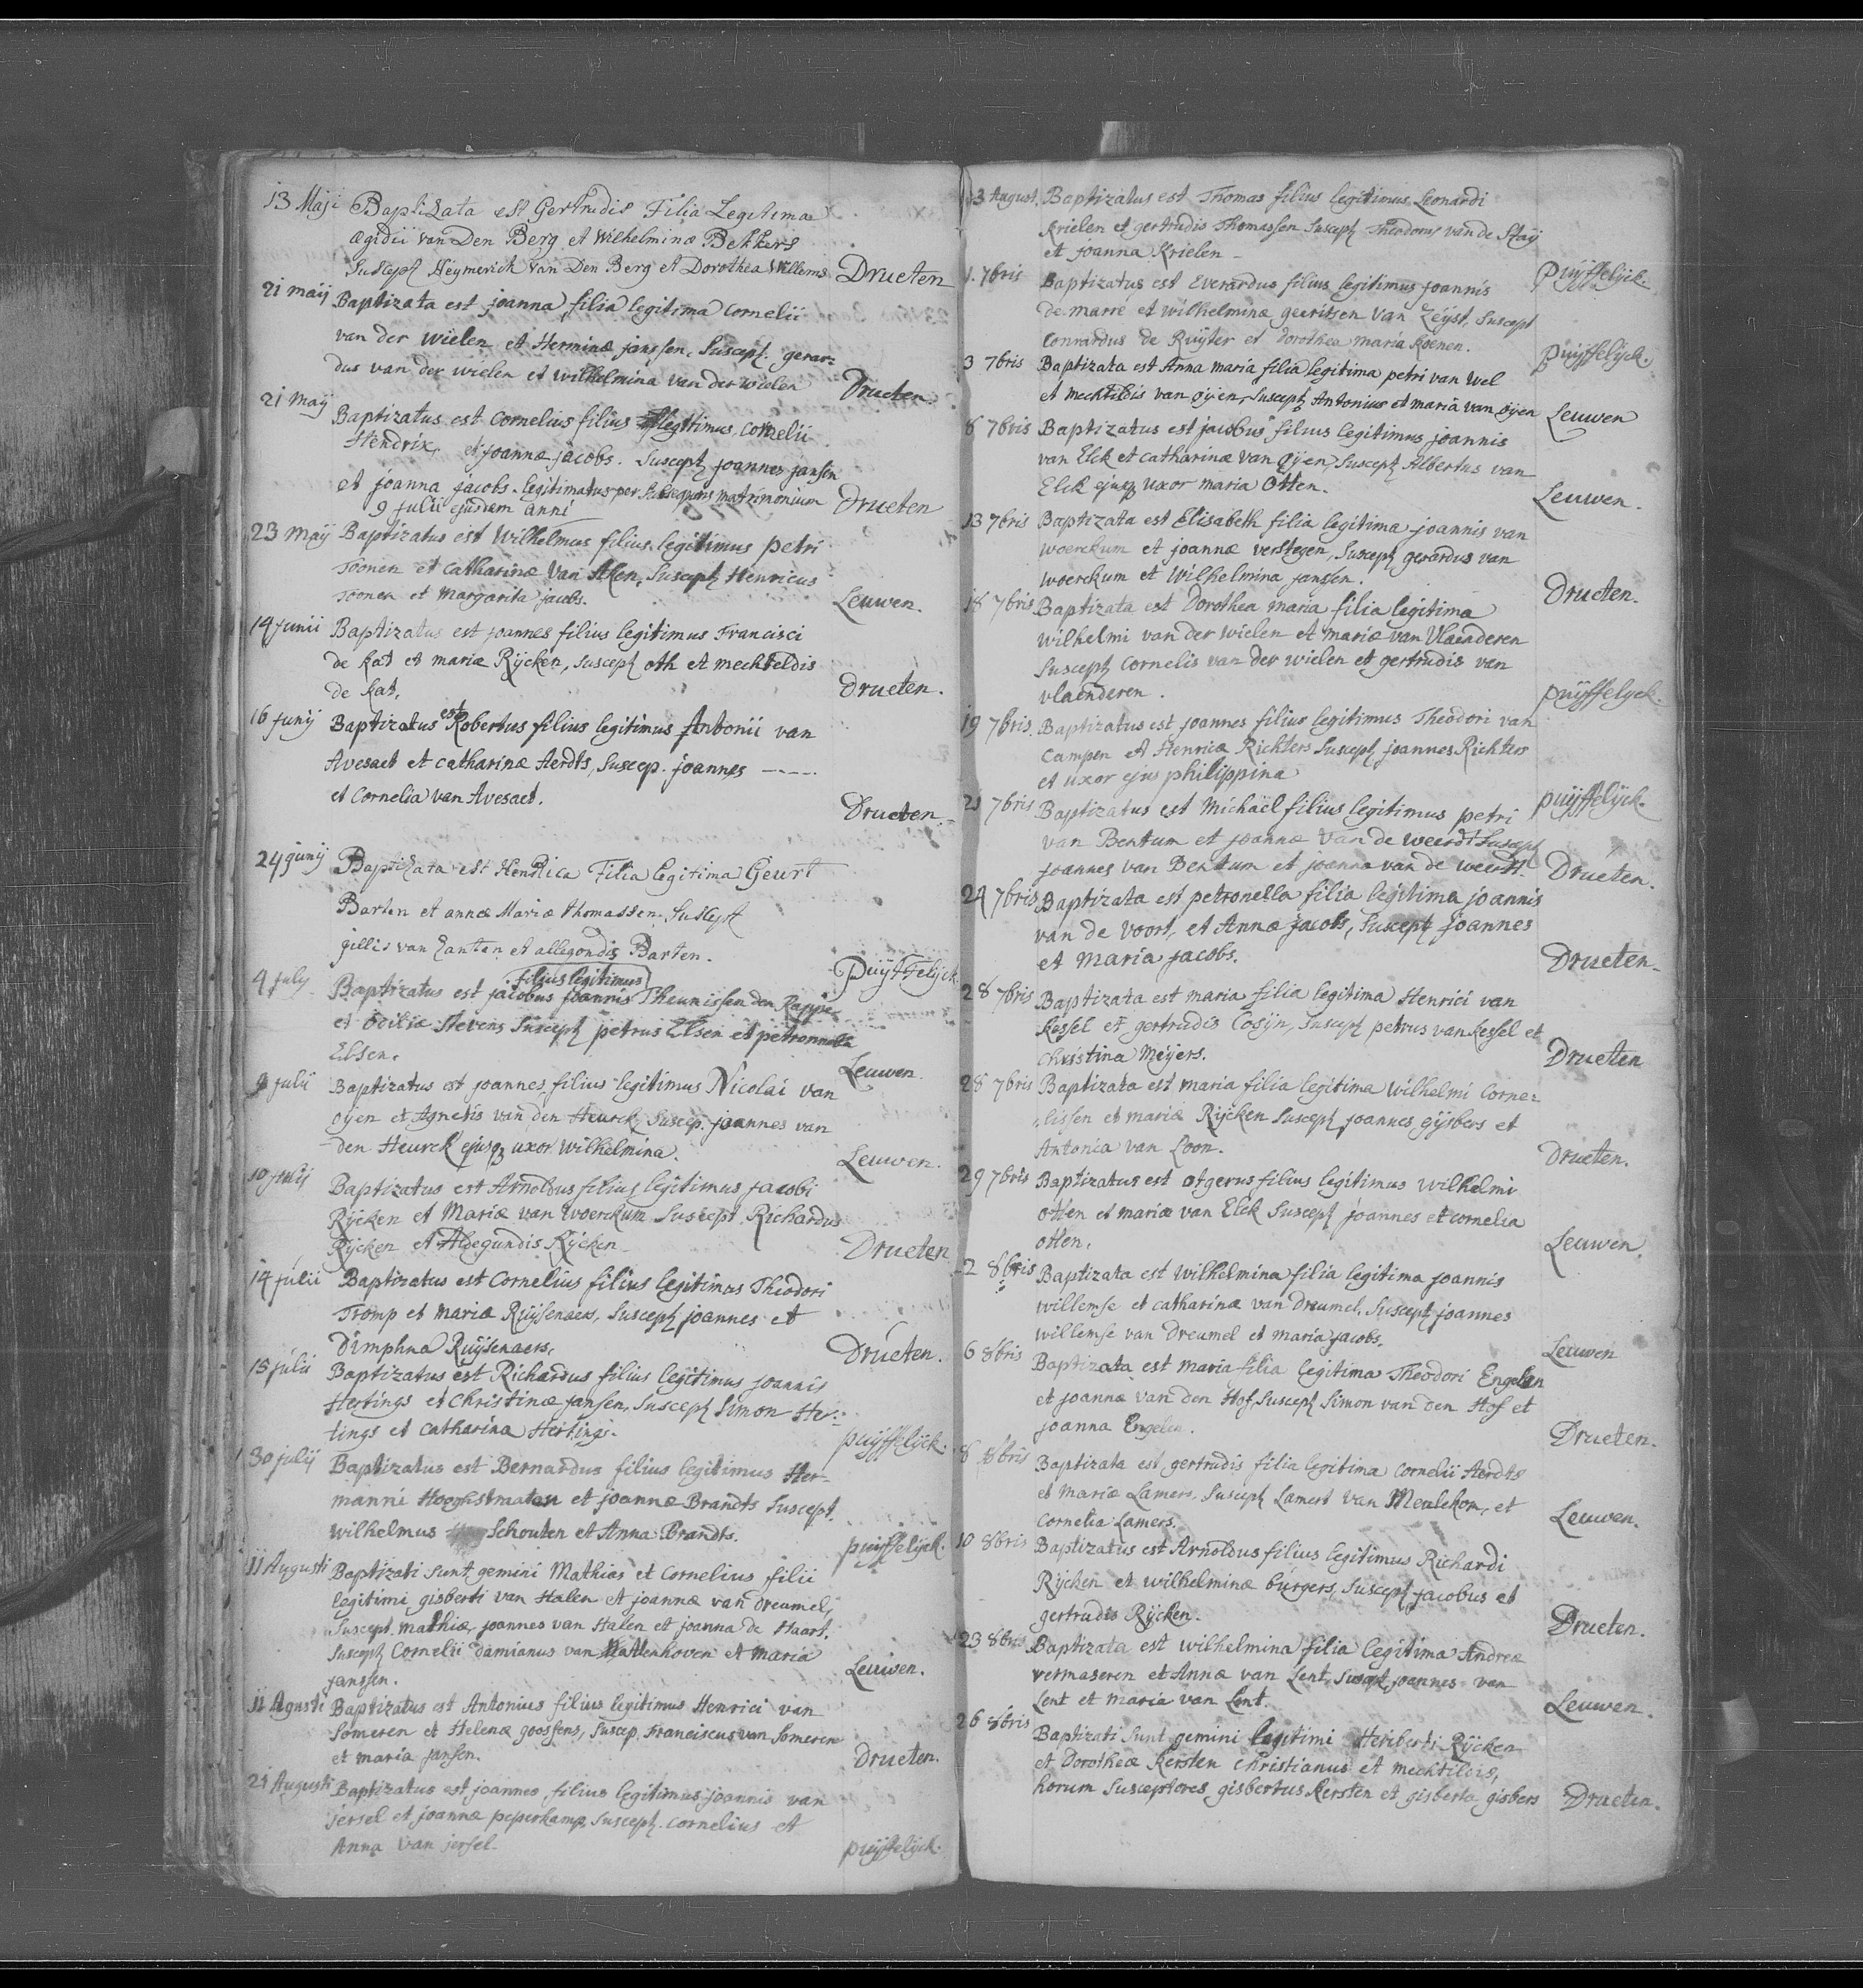 13 Maji Baptizata est Gertrudis Filia Legitima
Ægidii van Den Berg et Wilhelminæ Bekkers
Suscept Heymerick van Den Berg et Dorothea Willems Drueten
21 maij Baptizata est joanna filia legitima Cornelii
van der wielen et Herminæ janssen, Suscept. gerar=
dus van der wielen et wilhelmina van der wielen Drueten.
21 maij Baptizatus est Cornelius filius legitimus Cornelii
Hendrix et joannæ jacobs. Suscept joannes jansen
et joanna jacobs. legitimatus per subsequens matrimonium Drueten
9 julii ejusdem anni
23 maij Baptizatus est Wilhelmus filius legitimus petri
Toonen et Catharinæ Van Aken, Suscept Henricus
Toonen et Margarita jacobs. Leuwen.
14 junii Baptizatus est joannes filius legitimus Francisci
de Kat et mariæ Rijcken, suscept oth et mechteldis
de Kat. Drueten.
16 junij Baptizatus est Robertus filius legitimus Antonii van
Avesaet et catharinæ Aerdts, Suscep. joannes -----
et Cornelia van Avesaet. Drueten.
24 junij Baptizata est Hendrica Filia legitima Geurt
Barten et annæ Mariæ thomassen. Suscept
gillis van Zanten et allegondis Barten. Puijffelijck
4 july Baptizatus est jacobus filius legitimus joannis Theunissen den Rappe
et Odiliæ Stevens Suscept petrus Elsen et petronnella
Elsen. Leuwen
9 julii Baptizatus est joannes filius legitimus Nicolai van
oijen et Agnetis van den Heurck, Suscep. joannes van
den Heurck ejusq uxor Wilhelmina. Leuwen.
10 julij Baptizatus est Arnoldus filius legitimus jacobi
Rijcken et Mariæ van woerckum Suscept Richardus
Rijcken et Aldegundis Rijcken Drueten
14 julii Baptizatus est Cornelius filius legitimus Theodori
Tromp et mariæ Ruijsenaers, Suscept joannes et
Dimphna Ruijsenaers. Drueten.
15 julii Baptizatus est Richardus filius legitimus joannis
Hertings et Christinæ jansen, Suscept Simon Her=
tings et Catharina Hertings. puijffelijck.
30 julij Baptizatus est Bernardus filius legitimus Her-
manni Hooghstraaten et joannæ Brandts Suscept.
wilhelmus Schouten et Anna Brandts. puijffelijck.
11 Augusti Baptizati sunt gemini Mathias et Cornelius filii
legitimi gisberti van Halen et joannæ van dreumel,
Suscept. mathiæ, joannes van Halen et joanna de Haart.
Suscept Cornelii damianus van Hattenhoven et maria
janssen. Leuwen.
11 Agusti Baptizatus est Antonius filius legitimus Henrici van
Someren et Helenæ goossens, Suscep. Franciscus van Someren
et maria jansen. Drueten.
21 Augusti Baptizatus est joannes filius legitimus joannis van
jersel et joannæ peperkamp, Suscept. Cornelius et
Anna van jersel. puijffelijck.
3 August. Baptizatus est Thomas filius legitimus Leonardi
Krielen et gertrudis Thomassen Suscept Theodorus van de Staij
et joanna Krielen Puijffelijck.
1. 7bris Baptizatus est Everardus filius legitimus joannis
de marre et wilhelminæ geeritsen van Zeijst, Suscept
Conrardus de Ruijter et Dorothea maria Koenen. puijffelijck.
3 7bris Baptizata est Anna maria filia legitima petri van wel
et mechtildis van oijen, Suscept Antonius et maria van oijen Leuwen
6 7bris Baptizatus est jacobus filius legitimus joannis
van Elck et Catharinæ van oijen, Suscept Albertus van
Elck ejusq uxor maria Otten. Leuwen.
13 7bris Baptizata est Elisabeth filia legitima joannis van
woerckum et joannæ verstegen, Suscept gerardus van
woerckum et Wilhelmina janssen. Drueten.
18 7bris Baptizata est Dorothea maria filia legitima
wilhelmi van der wielen et mariæ van Vlaenderen
Suscept Cornelis van der wielen et gertrudis van
vlaenderen. puijffelyck.
19 7bris. Baptizatus est joannes filius legitimus Theodori van
Campen et Henricæ Richters Suscept joannes Richters
et uxor ejus philippina puijffelijck.
21 7bris Baptizatus est Michaël filius legitimus petri
van Bentum et joannæ van de weerdt Suscept
joannes van Bentum et joanna van de weerdt. Drueten.
24 7bris Baptizata est petronella filia legitima joannis
van de voort, et Annæ jacobs, Suscept joannes
et Maria jacobs. Drueten.
28 7bris Baptizata est maria filia legitima Henrici van
Kessel et gertrudis Cosijn, Suscept petrus van Kessel et
Christina Meijers. Drueten
28 7bris Baptizata est maria filia legitima wilhelmi Corne=
lissen et mariæ Rijcken Suscept joannes gijsbers et
Antonia van Loon. Drueten.
29 7bris Baptizatus est otgerus filius legitimus wilhelmi
otten et mariæ van Elck Suscept joannes et cornelia
otten. Leuwen.
2 8bris Baptizata est wilhelmina filia legitima joannis
willemse et catharinæ van dreumel, Suscept joannes
willemse van Dreumel et maria jacobs. Leuwen
6 8bris Baptizata est maria filia legitima Theodori Engelen
et joannæ van den Hof, Suscept Simon van den Hof et
joanna Engelen. Drueten.
8 8bris Baptizata est gertrudis filia legitima Cornelii Aerdts
et Mariæ Lamers. Suscept Lamert van Meulekom, et
Cornelia Lamers. Leuwen.
10 8bris Baptizatus est Arnoldus filius legitimus Richardi
Rijcken et wilhelminæ burgers, Suscept jacobus et
gertrudis Rijcken. Drueten.
23 8bris Baptizata est wilhelmina filia legitima Andreæ
vermaseren et Annæ van Lent, Suscept joannes van
Lent et maria van Lent. Leuwen.
26 8bris Baptizati sunt gemini legitimi Heriberti Rijcken
et Dorotheæ Kersten Christianus et mechtildis,
horum Susceptores gisbertus Kersten et gisberta gisbers Drueten.